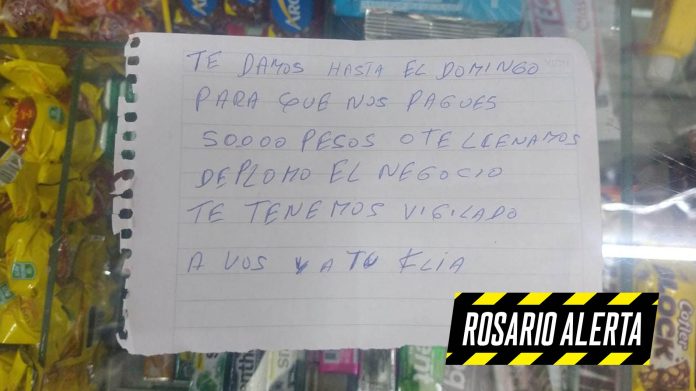 TE DAMOS HASTA EL DOMINGO
PARA QUE NOS PAGUES
50.000 PESOS O TE LLENAMOS
DE PLOMO EL NEGOCIO
TE TENEMOS VIGILADO
A VOS Y A TU FLIA
ROSARIO ALERTA